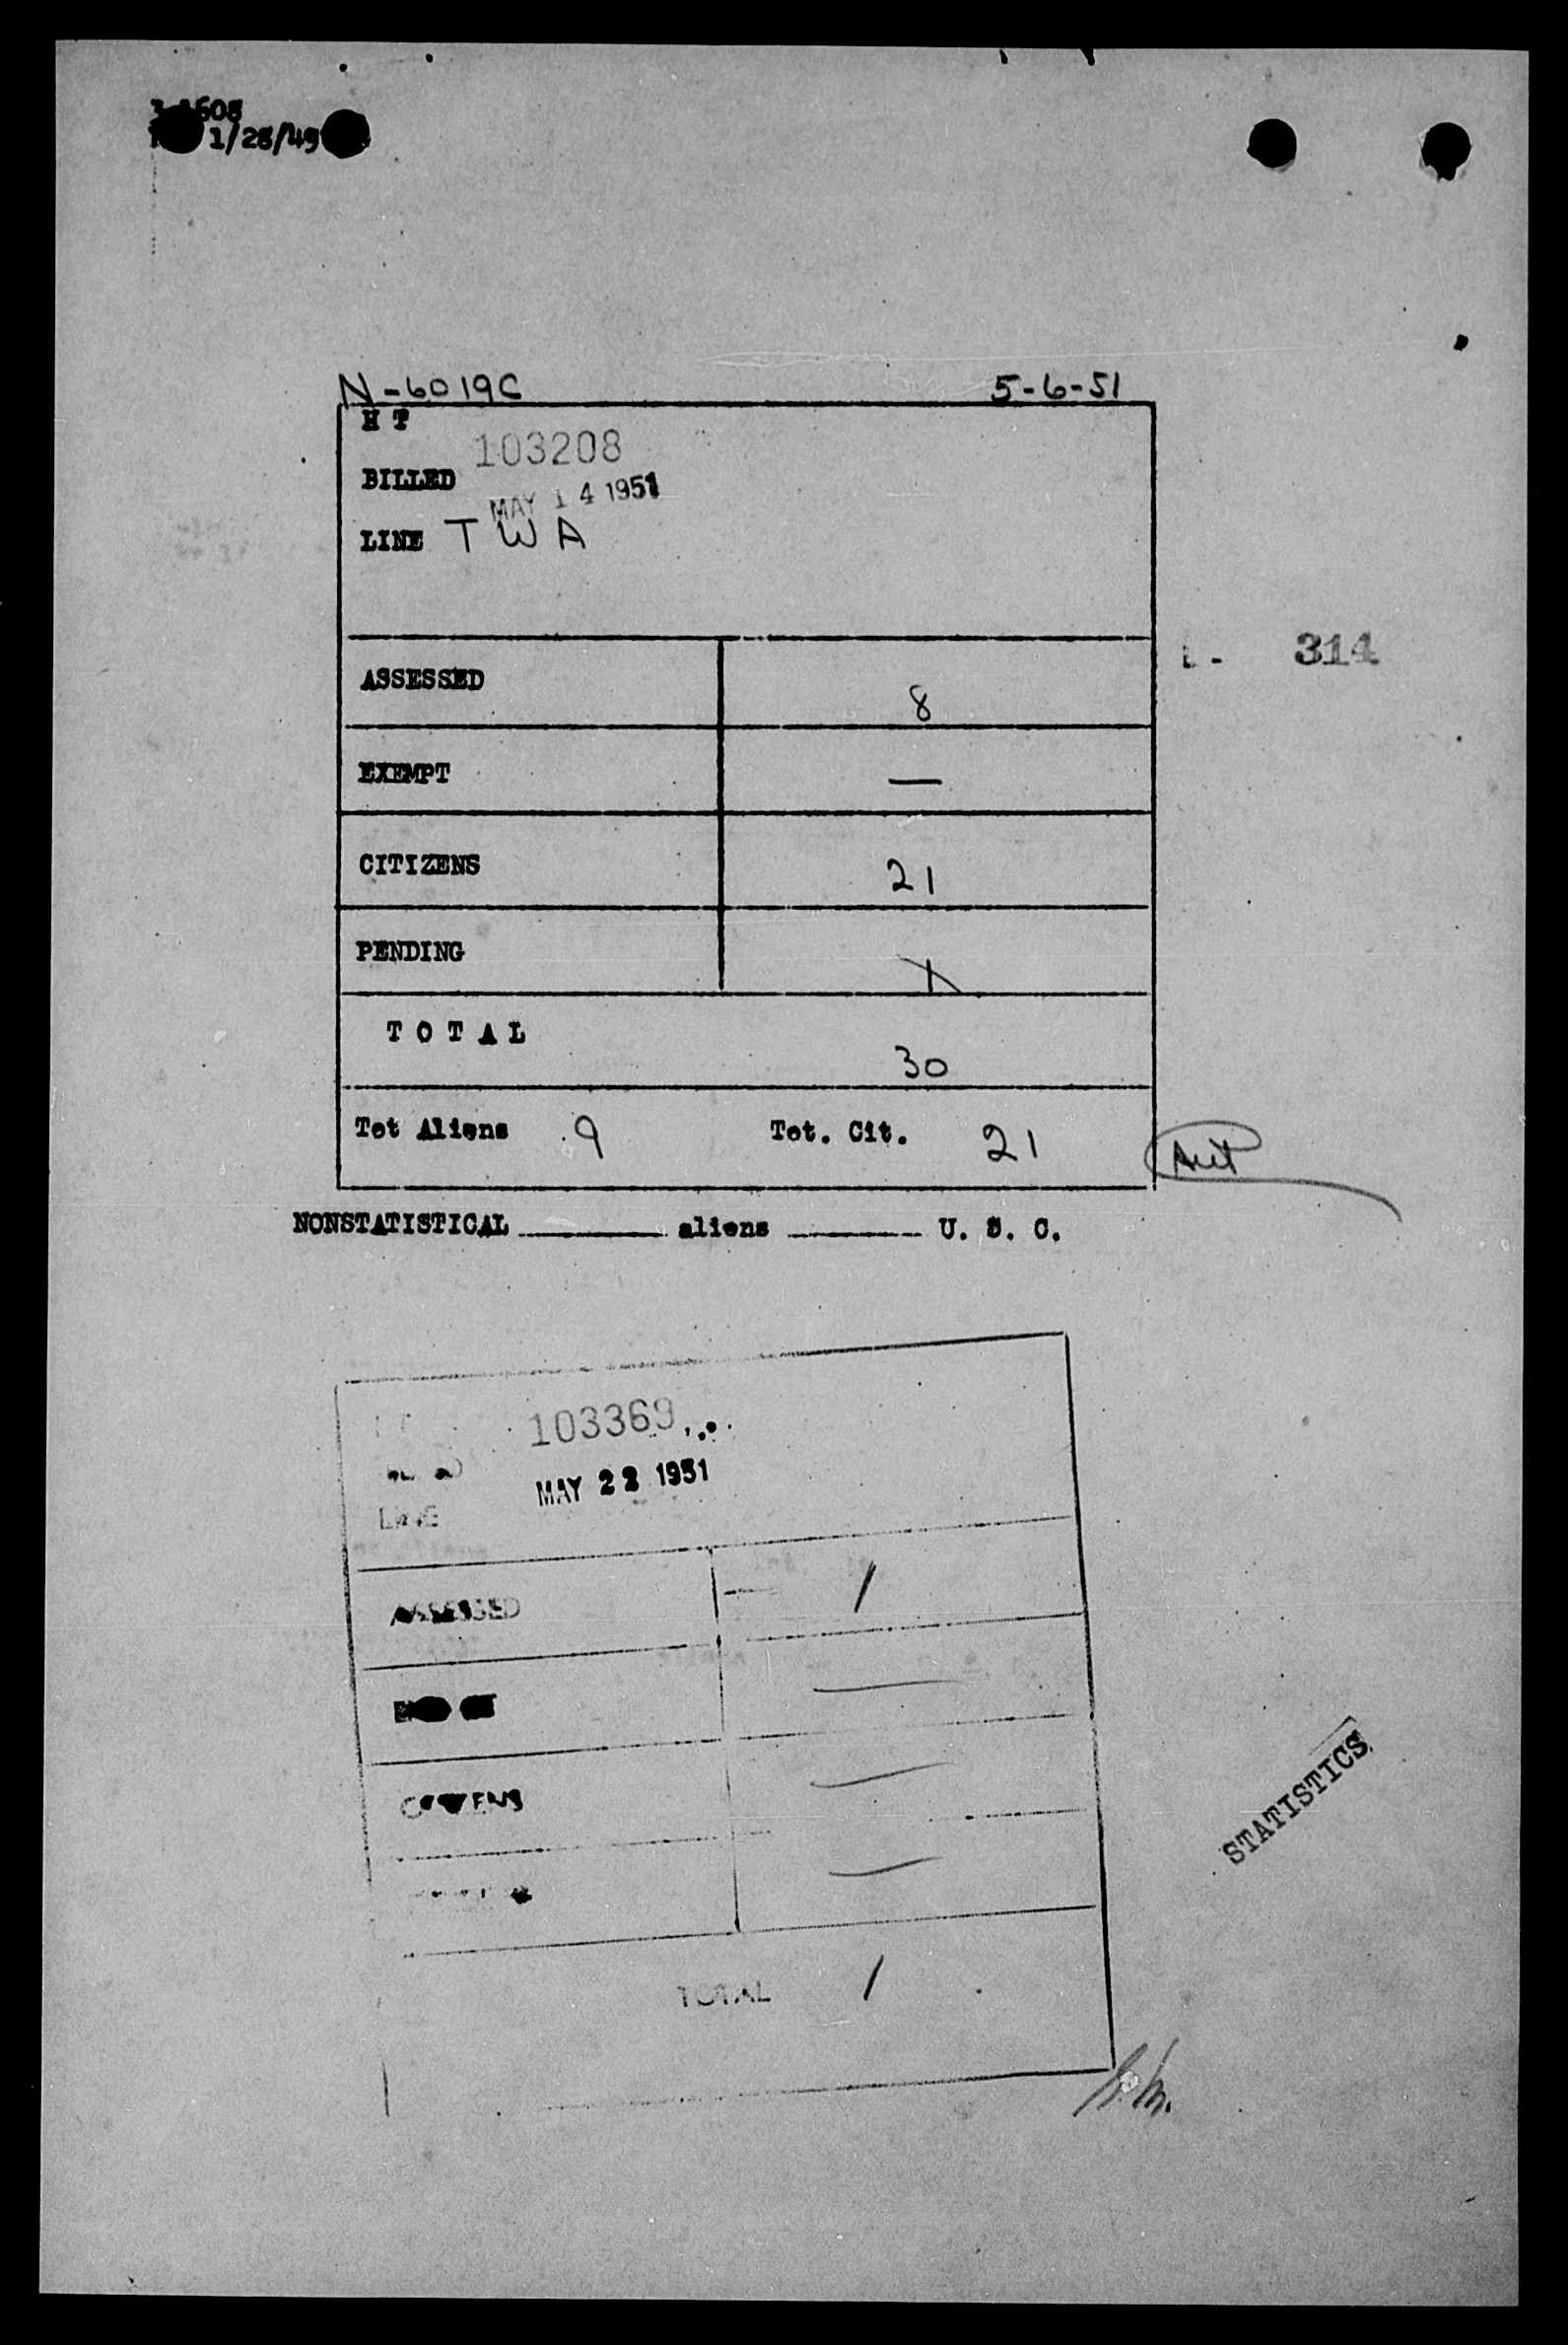 1/28/49
N-6019C 5-6-51
H T
103208
BILLED
MAY 14 1951
LINE T W A
314
ASSESSED 8
EXEMPT —
CITIZENS 21
PENDING
T O T A L 30
Tot Aliens 9 Tot. Cit. 21
NONSTATISTICAL aliens U. S. C.
103369
MAY 22 1951
LINE
ASSESSED 1
—
CITIZENS —
—
TOTAL 1
STATISTICS